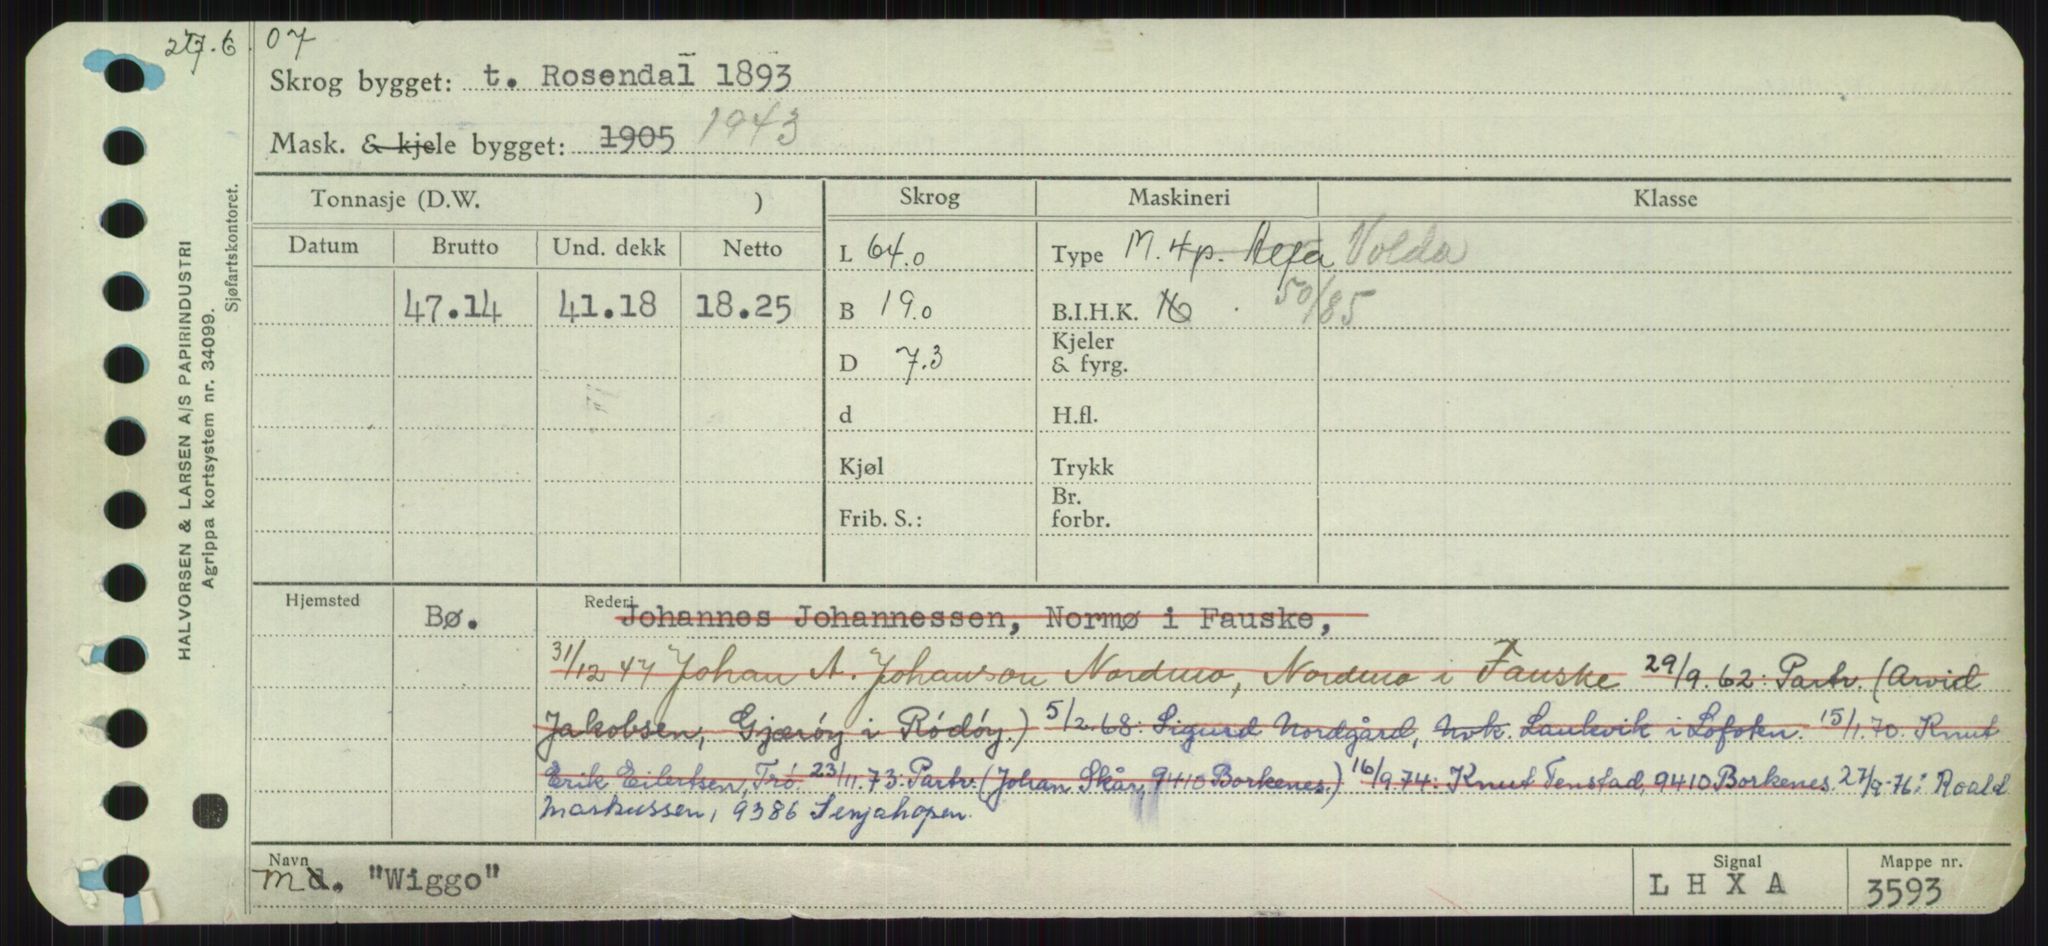 27.6.07
Skrog bygget: t. Rosendal 1893
Mask. & kjele bygget: 1905 1943
Tonnasje (D.W. ) Skrog Maskineri Klasse
Datum Brutto Und. dekk Netto
L 64.0 Type M. 4p. Alfa Volda
47.14 41.18 18.25 B 19.0 B.I.H.K. 50/85
Kjeler
D 7.3 & fyrg.
d H.fl.
Kjøl Trykk
Br.
Frib. S.: forbr.
Hjemsted Rederi
Bø. Johannes Johannessen, Normø i Fauske,
31/12 47 Johan A. Johanson Nordmo, Nordmo i Fauske 29/9.62: Partr. (Arvid
Jakobsen, Gjærøy i Rödöy.) 5/2.68: Sigurd Nordgård, Nvk. Laukvik i Lofoten. 15/1.70. Knut
Erik Eilertsen, Trø. 23/11.73: Partr. (Johan Skår, 9410 Borkenes.) 16/9.74: Knut Tenstad, 9410 Borkenes. 27/9-76: Roald
Markussen, 9386 Senjahopen.
Navn Signal Mappe nr.
M d. "Wiggo" L H X A 3593
HALVORSEN & LARSEN A/S PAPIRINDUSTRI
Agrippa kortsystem nr. 34099.
Sjøfartskontoret.